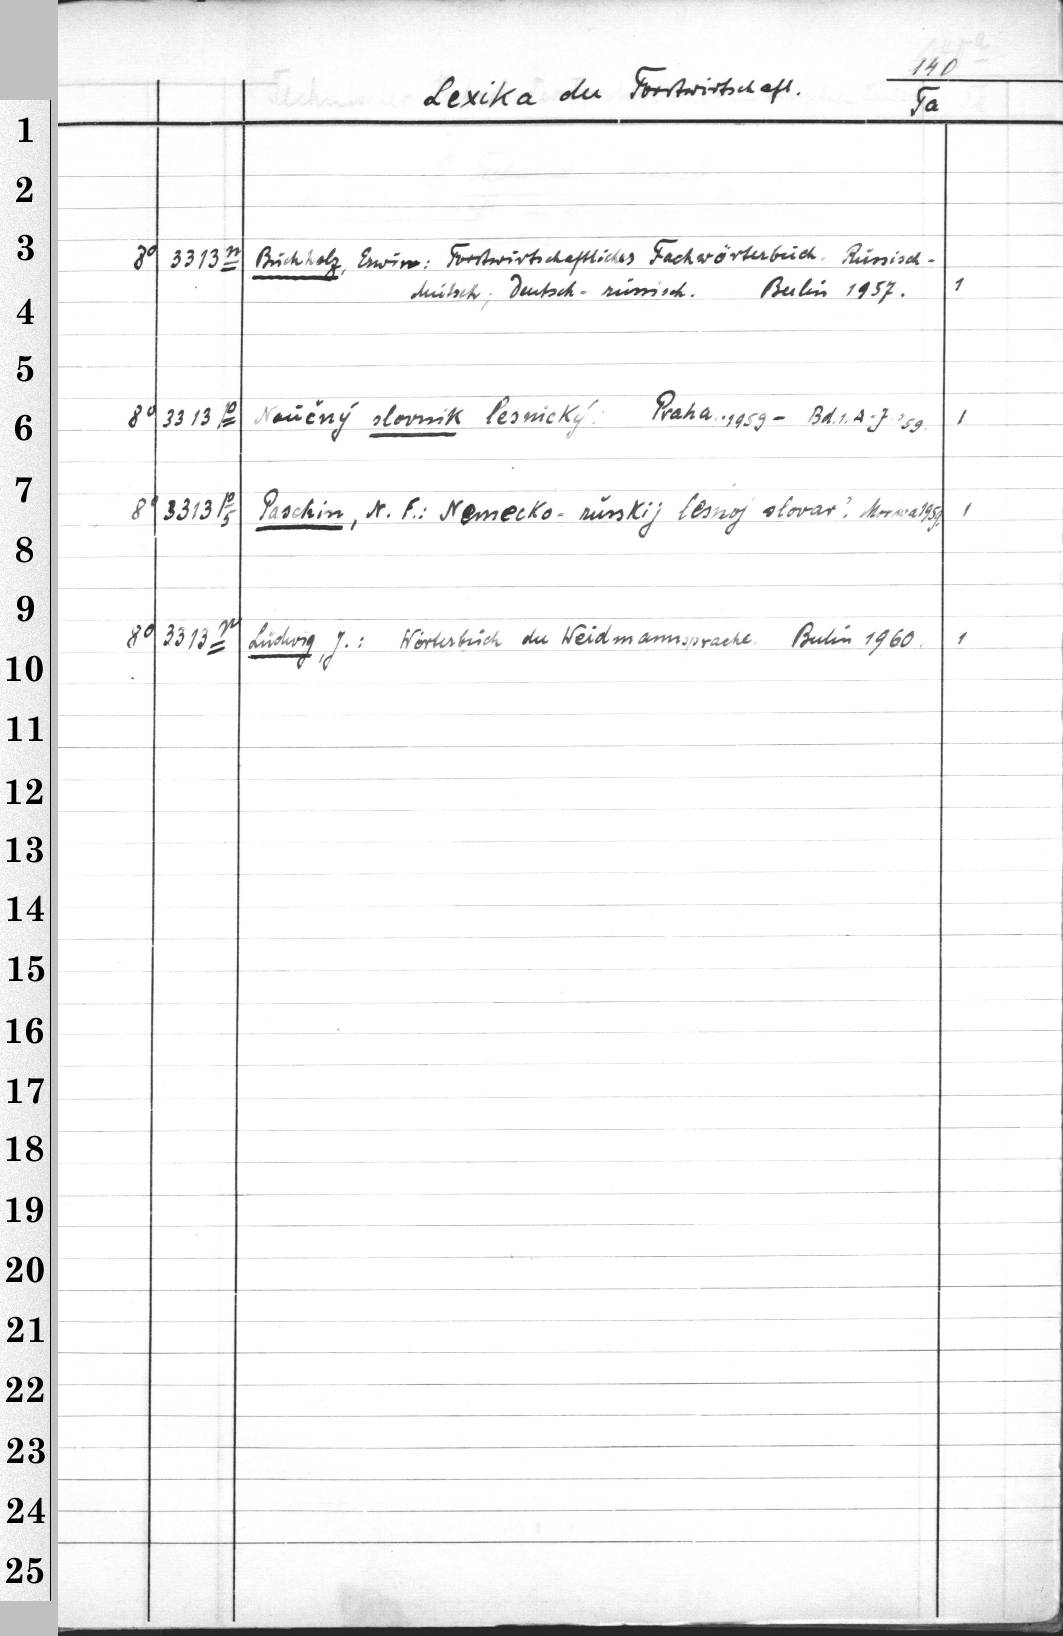 140
Lexika der Forstwirtschaft. Ta
1
2
3
8° 3313 n Buchholz, Erwin: Forstwirtschaftliches Fachwörterbuch. Russisch-
deutsch, Deutsch-russisch. Berlin 1957. 1
4
5
6
8° 3313 p Naučný slovník lesnický. Praha. 1959- Bd.1. A-J. '59. 1
7
8° 3313 p/5 Paschin, N. F.: Nemecko-russkij lesnoj slovar'. Moskva 1959. 1
8
9
8° 3313 Ludwig, J.: Wörterbuch der Weidmannssprache. Berlin 1960. 1
10
11
12
13
14
15
16
17
18
19
20
21
22
23
24
25